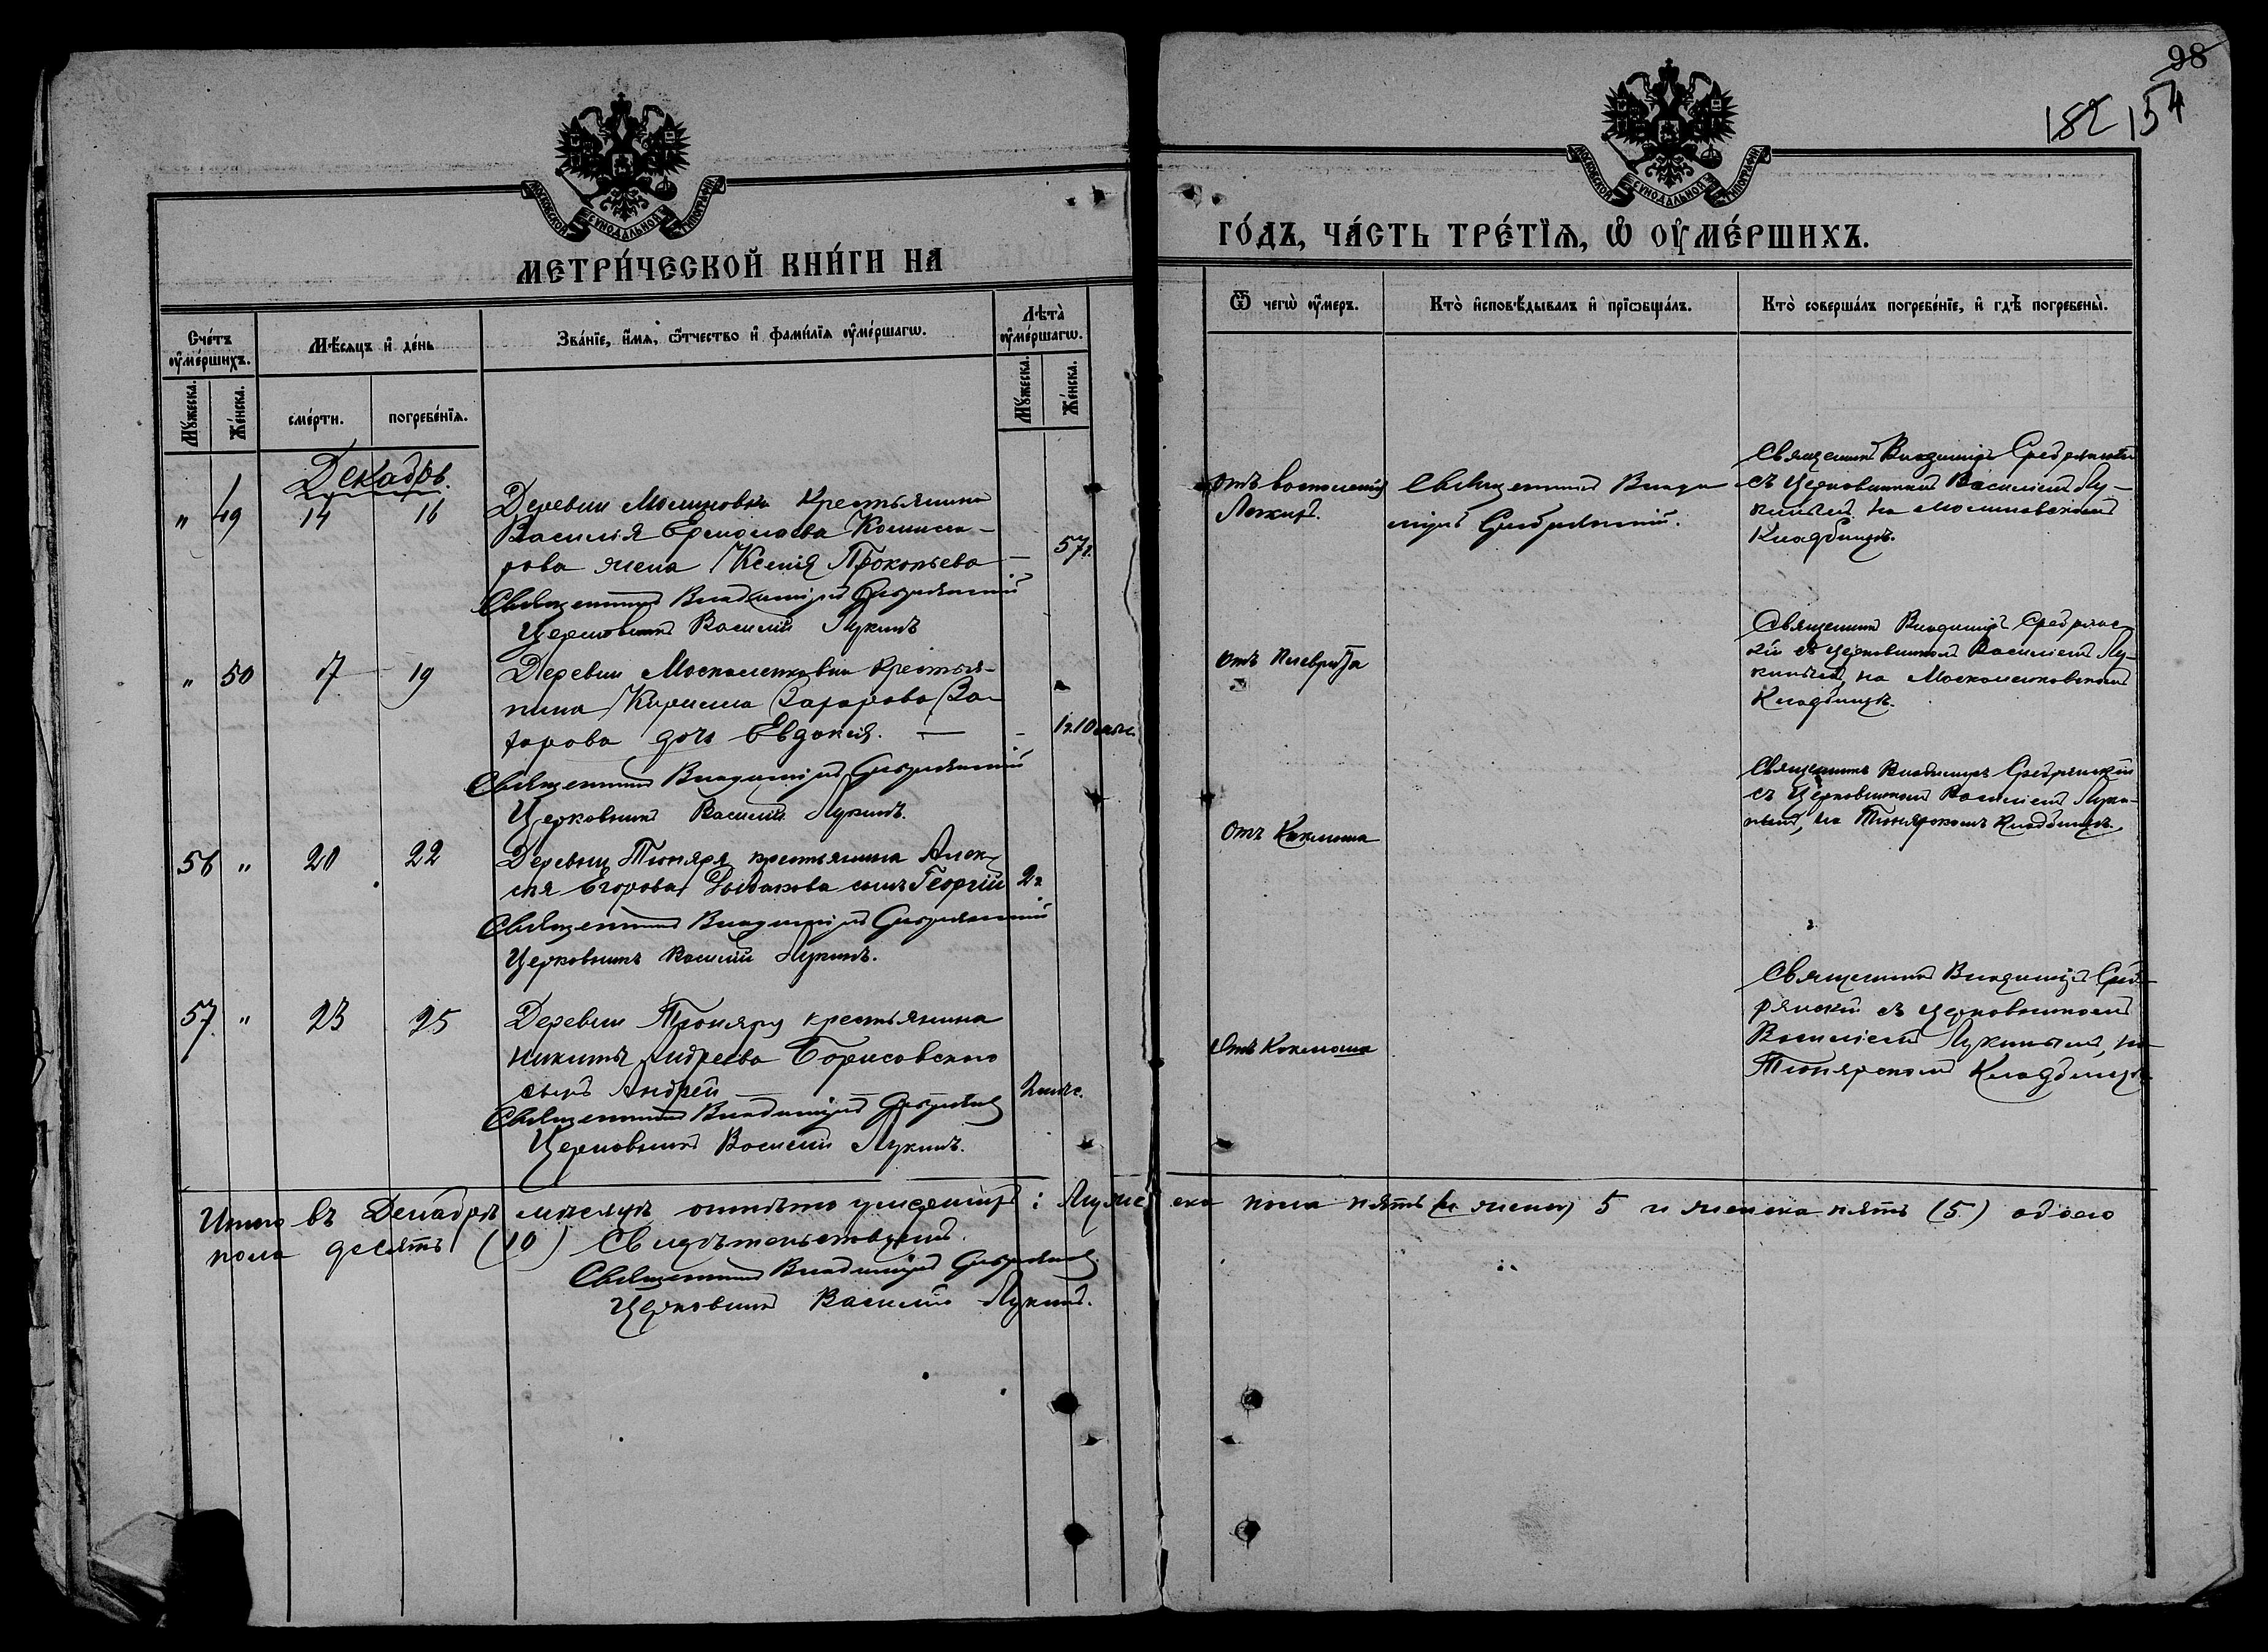 98
182 154
МОСКОВСКОЙ СѴНОДАЛЬНОЙ ТИПОГРАФІИ
МОСКОВСКОЙ СѴНОДАЛЬНОЙ ТИПОГРАФІИ
МЕТРИ́ЧЕСКОЙ КНИ́ГИ НА
ГО́ДЪ, ЧА́СТЬ ТРЕ́ТЇѦ, Ѡ҆ ОУ҆МЕ́РШИХЪ.
Сче́тъ оу҆ме́ршихъ.
Мѹ́жеска.
Же́нска.
Мѣ́сяцъ и҆ де́нь
сме́рти.
погребе́нїѧ.
Зва́нїе, и҆́мѧ, ѻ҆́тчество и҆ фами́лїѧ оу҆ме́ршагѡ.
Лѣта̀ оу҆ме́ршагѡ.
Мѹ́жеска.
Же́нска.
Ѿ чегѡ̀ оу҆́меръ.
Кто̀ и҆сповѣ́дывалъ и҆ прїѡбща́лъ.
Кто̀ соверша́лъ погребе́нїе, и҆ гдѣ̀ погребены̀.
Декабрь.
" 49 14 16
Деревни крестьянина
Василія Ермолаева
рова жена Ксенія Прокопьева — 57 г.
Священникъ Владиміръ Сребрянскій
Церковникъ Василій Лукинъ
Отъ воспаленія
Легкихъ.
Священникъ Влади-
міръ Сребрянскій.
Священникъ Владиміръ Сребрянскій
съ Церковникомъ Василіемъ Лу-
кинымъ, на
Кладбищѣ.
" 50 17 19
Деревни крестья-
нина Кирилла Захарова За-
харова дочь Евдокія. — 1 г. 10 мѣс.
Священникъ Владиміръ Сребрянскій
Церковникъ Василій Лукинъ.
Отъ Плеврита
Священникъ Владиміръ Сребрянс-
кій съ Церковникомъ Василіемъ Лу-
кинымъ, на
Кладбищѣ.
56 " 20 22
Деревни Тюняря крестьянина Алек-
сѣя Егорова сынъ Георгій 2 г
Священникъ Владиміръ Сребрянскій
Церковникъ Василій Лукинъ.
Отъ Коклюша
Священникъ Владиміръ Сребрянскій
съ Церковникомъ Василіемъ Луки-
нымъ, на Тюнярскомъ Кладбищѣ.
57 " 23 25
Деревни Тюняря крестьянина
Никиты Андреева Борисовскаго
сынъ Андрей — 2 мѣс.
Священникъ Владиміръ Сребрянскій
Церковникъ Василій Лукинъ.
Отъ Коклюша
Священникъ Владиміръ Среб-
рянскій съ Церковникомъ
Василіемъ Лукинымъ, на
Тюнярскомъ Кладбищѣ
Итого въ Декабрѣ мѣсяцѣ отпѣто умершихъ: Мужеска пола пять 5 и женска пять (5) обоего
пола десять (10) Свидѣтельствуемъ.
Священникъ Владиміръ Сребрянскій
Церковникъ Василій Лукинъ.